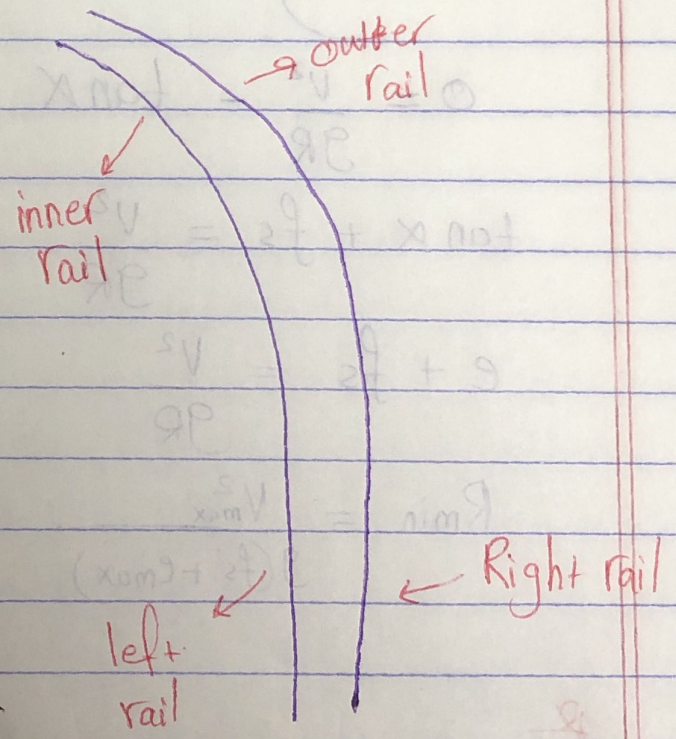 outter
rail
inner
rail
Right rail
left
rail